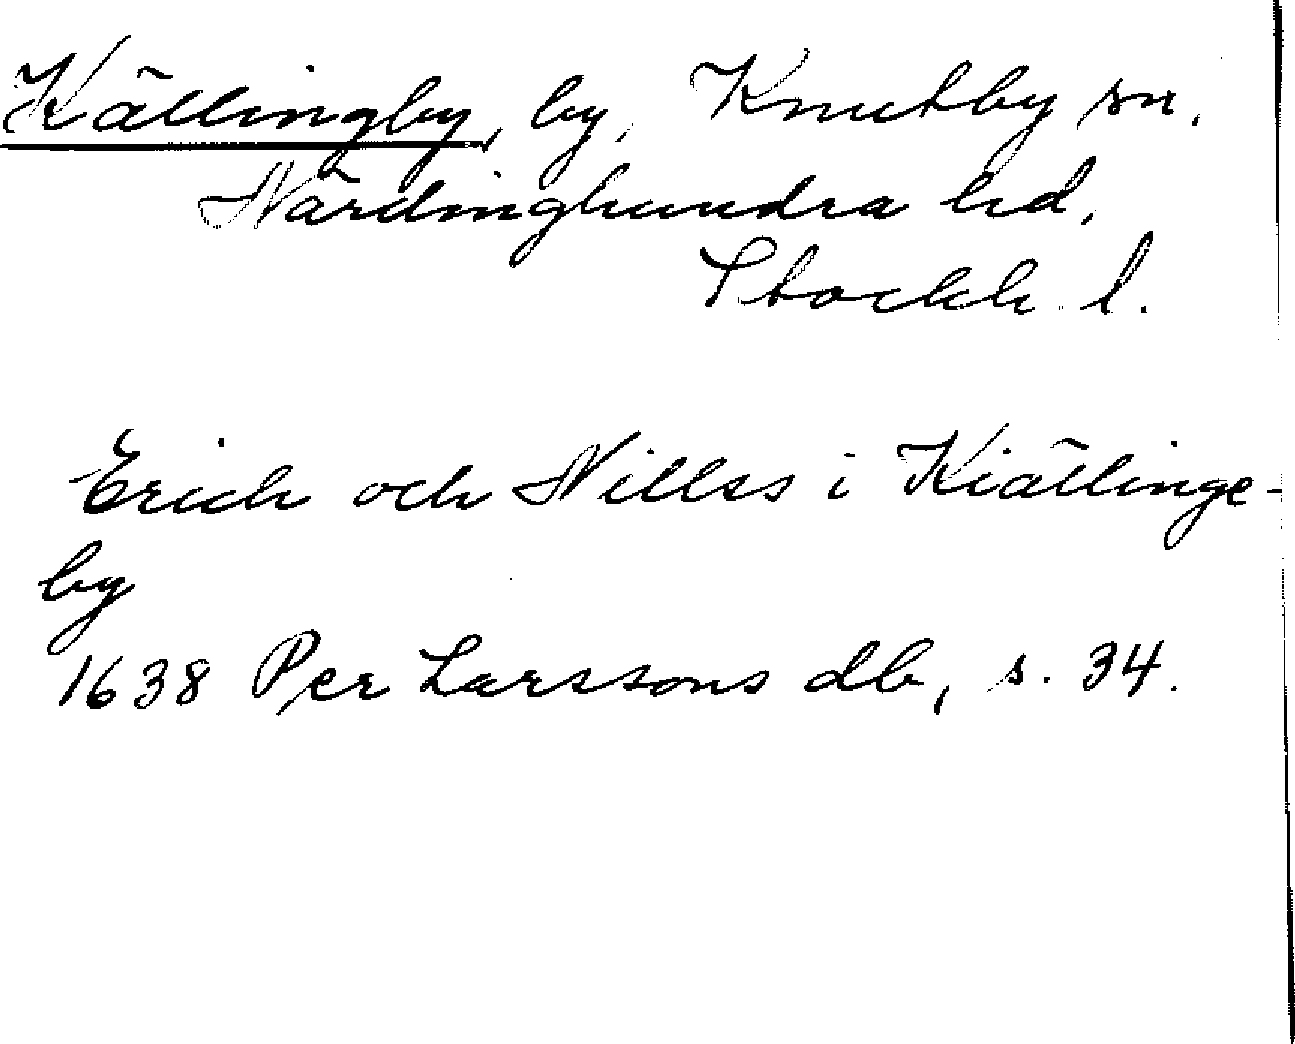 Källingby, by, Knutby sn.
Närdinghundra hd.
Stockh. l.
Erich och Nillss i Kiällinge-
by
1638 Per Larssons db, s. 34.